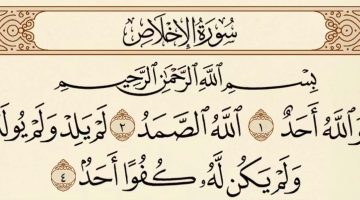 سُورَةُ الإِخْلَاصِ
بِسْمِ اللَّهِ الرَّحْمَٰنِ الرَّحِيمِ
اللَّهُ أَحَدٌ ١ اللَّهُ الصَّمَدُ ٢ لَمْ يَلِدْ وَلَمْ
وَلَمْ يَكُن لَّهُۥ كُفُوًا أَحَدٌۢ ٤